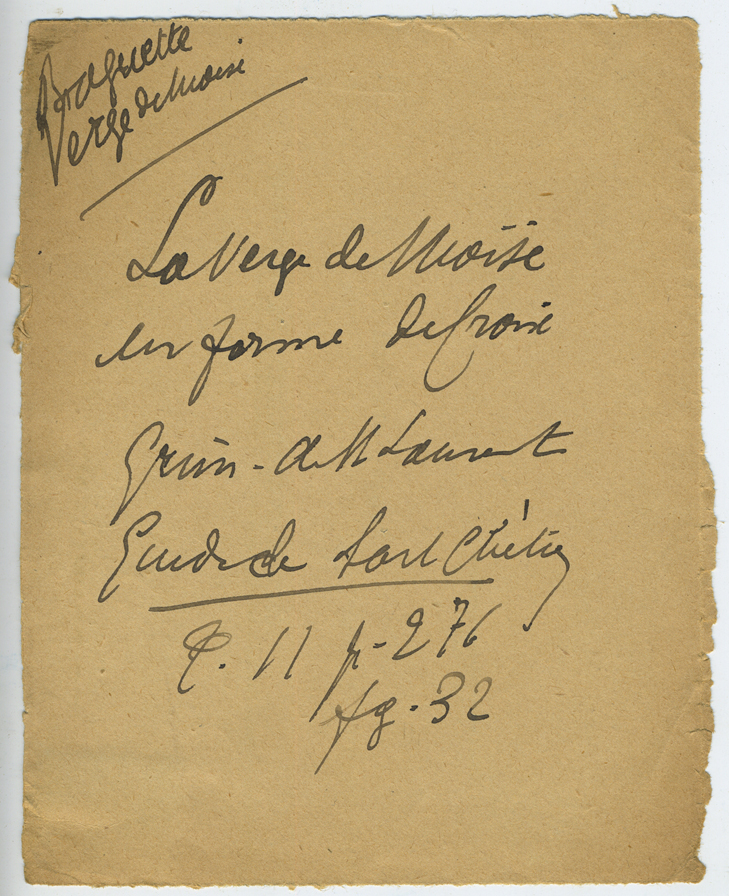 Baguette
Verge de Moïse
La Verge de Moïse
en forme de Croix
Grim - de St Laurent
Guide de l'art Chrétien
T. II p - 276
fg. 32